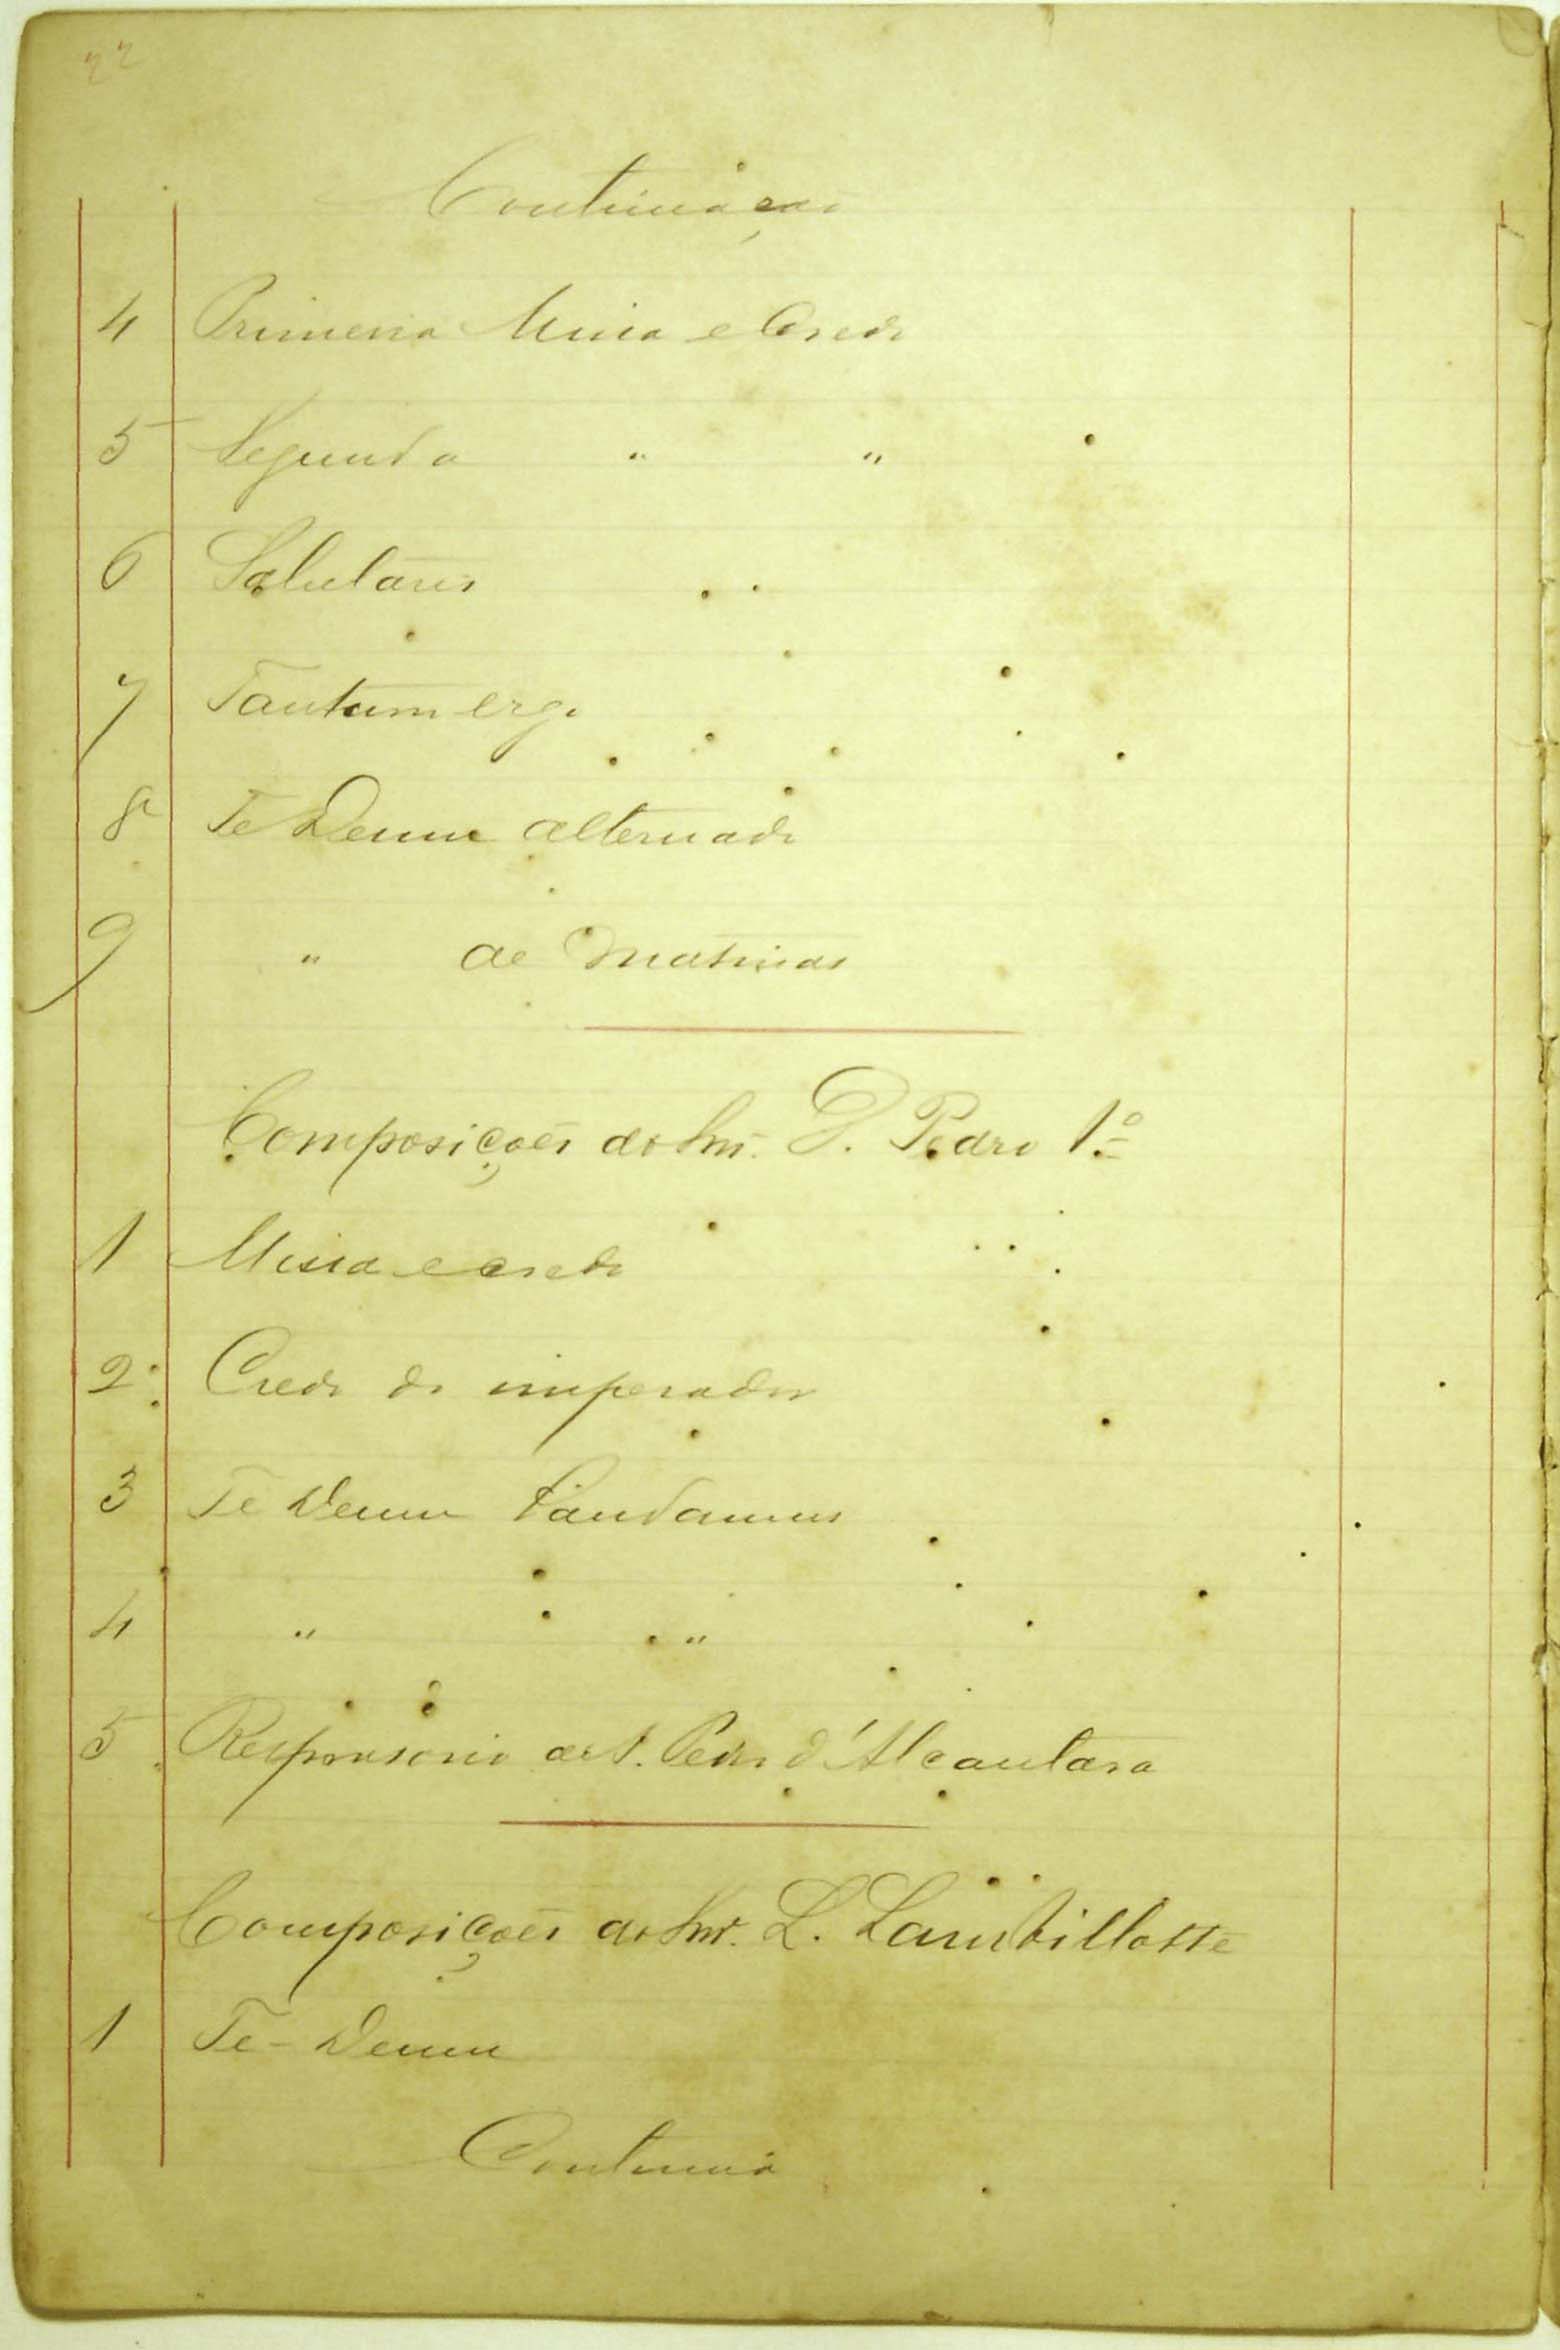 22
Continuação
4 Primeira Missa e Credo
5 Segunda " "
6 Salutaris
7 Tantum ergo
8 Te Deum alternado
9 " de Matinas
Composições do Snr. D. Pedro 1º
1 Missa e credo
2 Credo do imperador
3 Te Deum Laudamus
4 " "
5 Responsorio de S. Pedro d'Alcantara
Composições do Snr. L. Lambillotte
1 Te-Deum
Continua